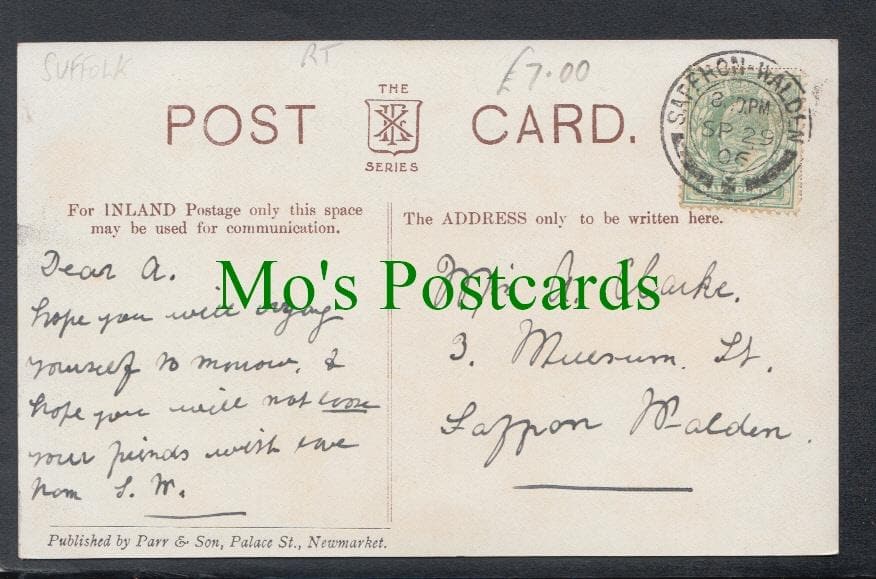 SUFFOLK
RT
£7.00
THE
POST CARD.
SERIES
SAFFRON-WALDEN
PM
SP 29
06
For INLAND Postage only this space
may be used for communication.
The ADDRESS only to be written here.
Mo's Postcards
Dear A.
hope you will enjoy
yourself to morrow, &
hope you will not loose
your friends with love
from S. W.
A. Clarke.
3. Museum St.
Saffron Walden.
Published by Parr & Son, Palace St., Newmarket.